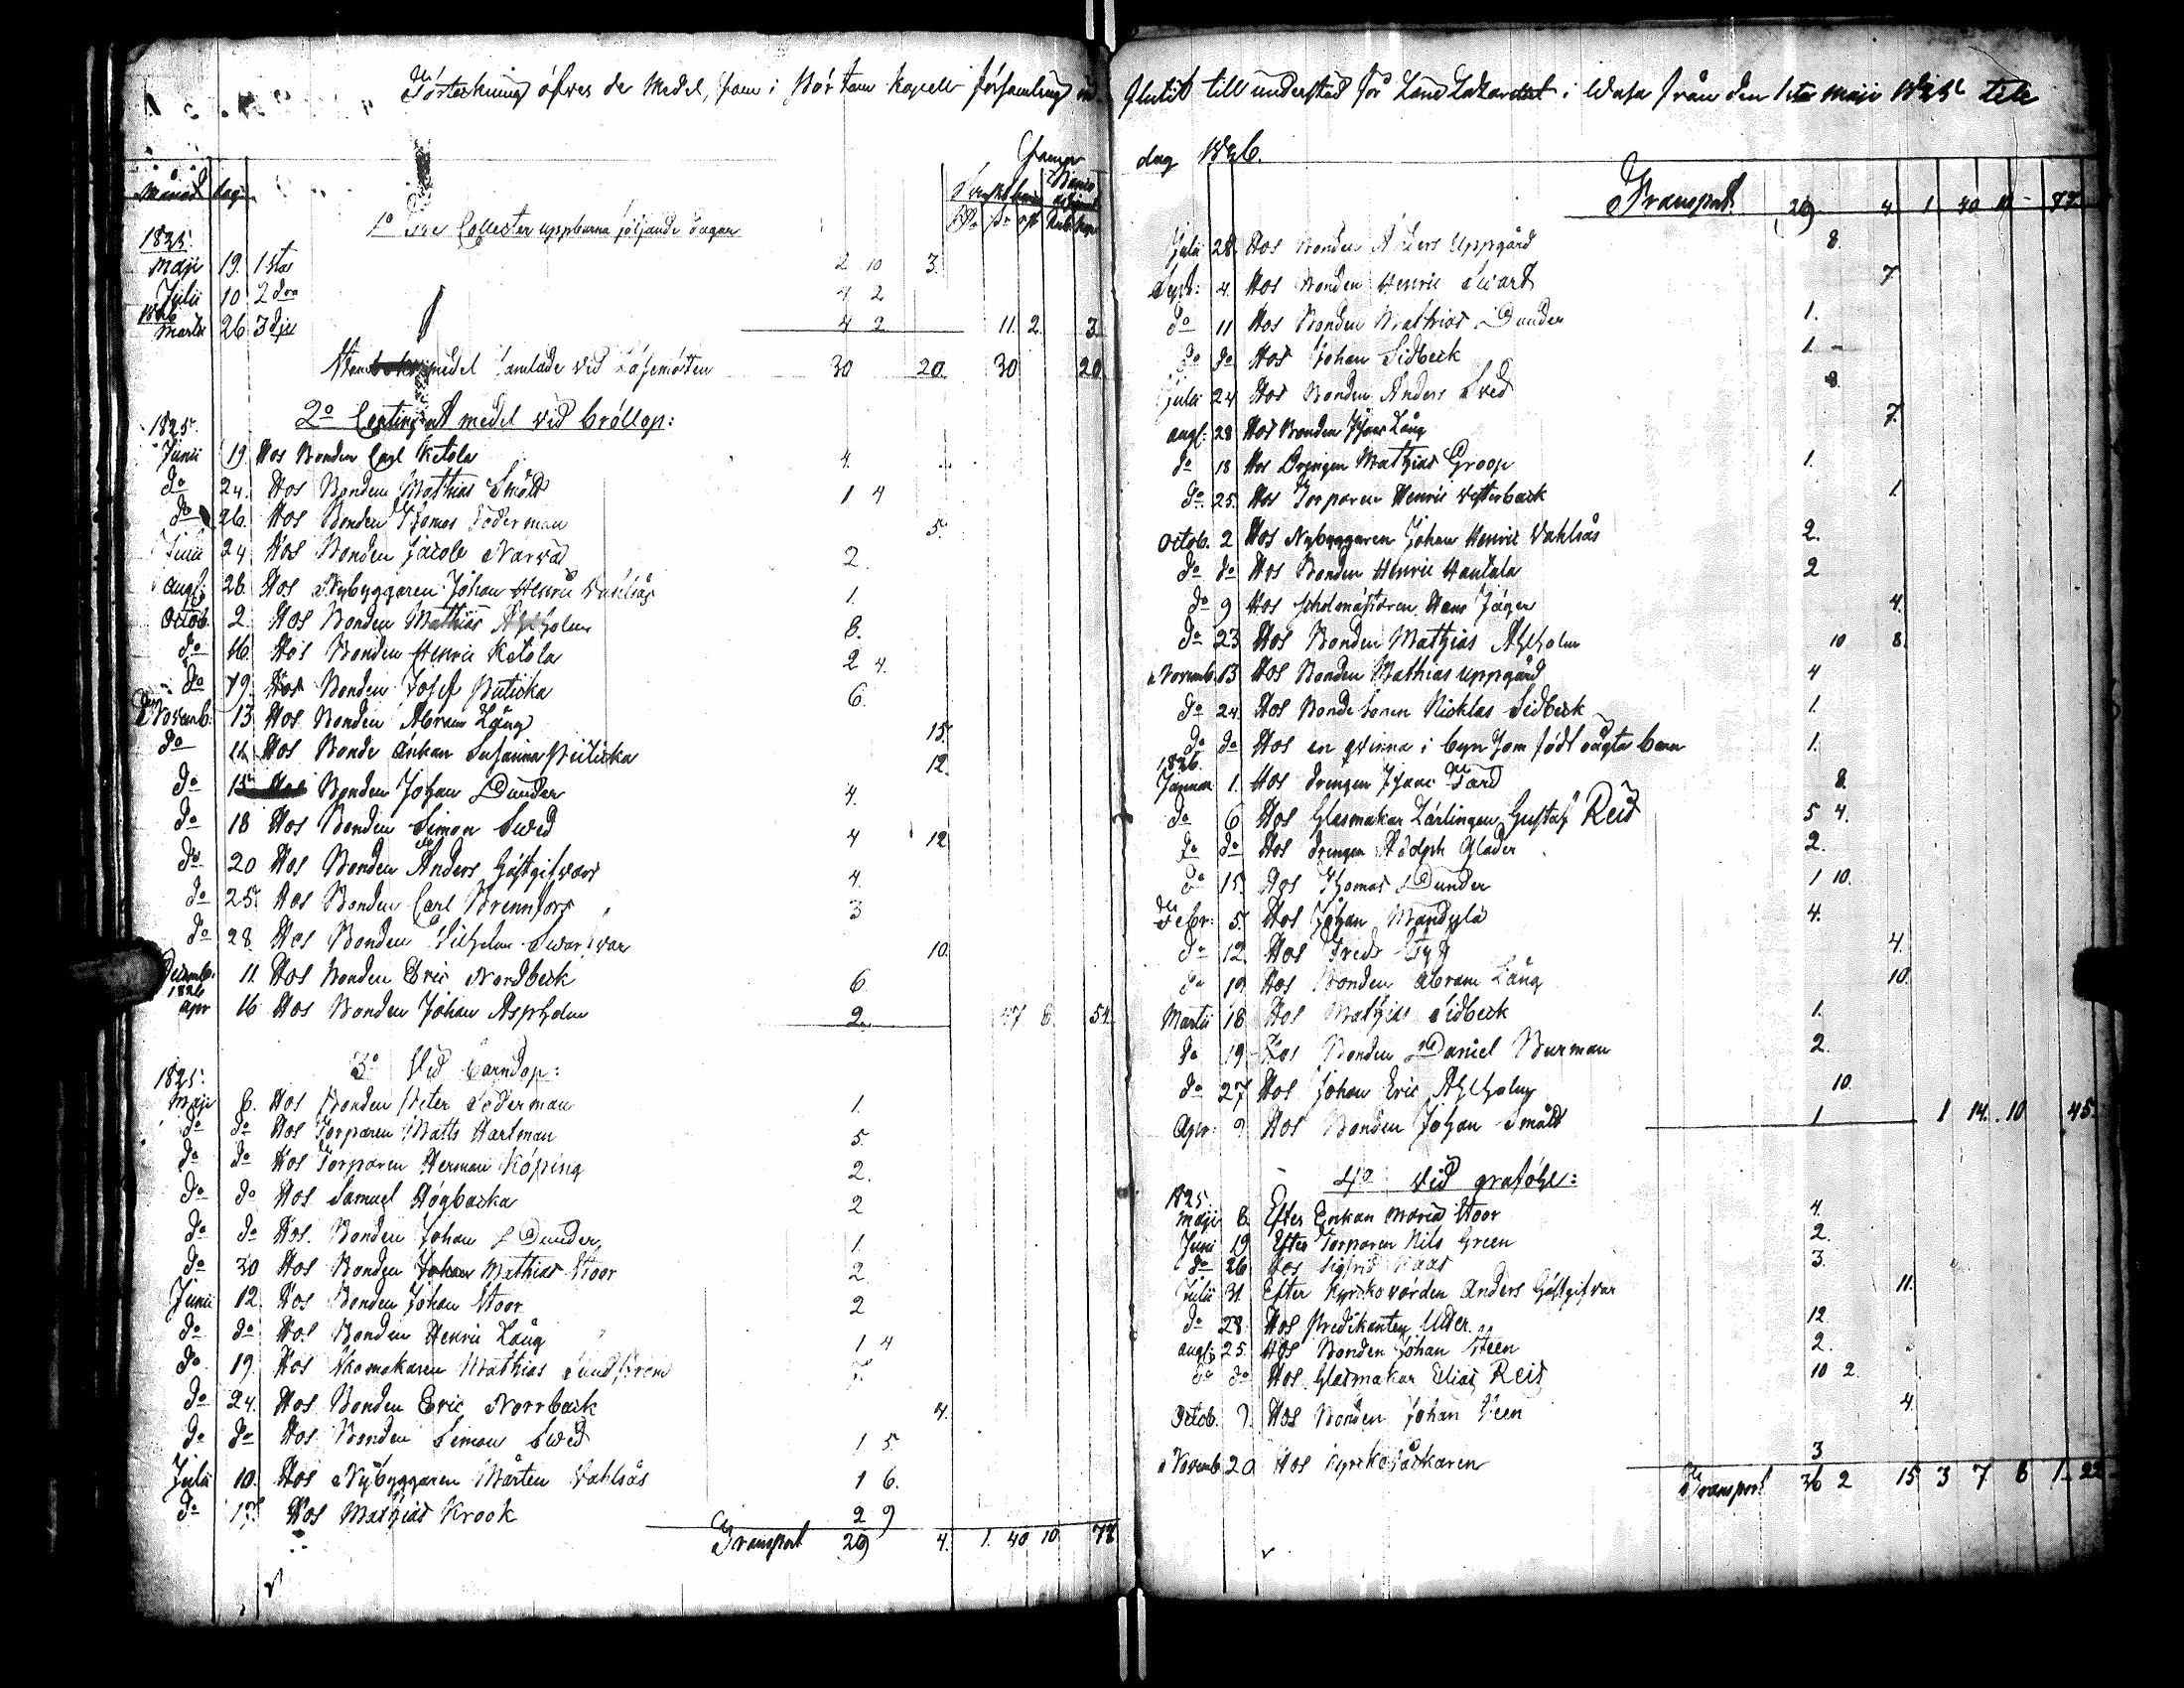 Förteckning öfver de Medel, som i Förtom Kapell församling in-
Summa
Svenskt banco Banco Assignat
Månad dag Rdr sk rst Rub. Kop.
1o Tre Collecter uppburna följande dagar
1825.
Maji 19. 1sta 2 10 3.
Julii 10 2dra 4 2
1826
Martii 26 3dje 4 2 11. 2. 3.
medel samlade vid Läsemöten 30 20. 30 20
2o Contingent medel vid bröllop:
1825.
Junii 19 Hos Bonden Carl Ketola 4.
do 24. Hos Bonden Mathias Smått 1 4
do 26. Hos Bonden Thomas Söderman 5.
24 Hos Bonden Jacob Narva 2.
Aug: 28. Hos Nybyggaren Johan Henric Vahlsås 1.
Octob 2. Hos Bonden Mathias Ahlholm 8.
do 16. Hos Bonden Henric Ketola 2 4.
do 19. Hos Bonden Josef 6.
Novemb: 13. Hos Bonden Abram Lång 15.
do Hos Bonde änkan Susanna 12.
do 15 Hos Bonden Johan Dunder 4.
do 18 Hos Bonden Simon Sved 4 12
do 20 Hos Bonden Anders Gästgifvars 4.
do 25. Hos Bonden Carl Brennfors 3
do 28. Hos Bonden 10.
Decemb: 11. Hos Bonden Eric Nordbeck 6
1826
Apr 16 Hos Bonden Johan Aspholm 2. 47 8. 54.
3o Vid barndop:
1825.
Maji 8. Hos Bonden Peter Söderman 1.
do do Hos Torparen Matts Hartman 5.
do do Hos Torparen Herman Köping 2.
do do Hos Samuel Högbacka 2
do do Hos Bonden Johan Dunder 1.
do 30 Hos Bonden Johan Mathias Stoor 2
Junii 12. Hos Bonden Johan Stoor 2
do do Hos Bonden Henric Lång 1 4
do 19. Hos Skomakaren Mathias Sundström
do 24. Hos Bonden Eric Norrback 4.
do do Hos Bonden Simon Sved 1 5.
Julii 10. Hos Nybyggaren Mårten Vahlsås 1 6.
do 17. Hos Mathias Krook 2 9
Transport 29 4. 1. 40 10. 77
flutit till understöd för Lands Lazarettet i Wasa från den 1sta Maji 1825 till
dag 1826.
Transport. 29 4. 1 40 10 - 77.
Julii 28. Hos Bonden Anders Uppgård 8.
Sept: 4. Hos Bonden Henric Svart 7.
do 11 Hos Bonden Mathias Dunder 1.
do do Hos Johan Sidbeck 1. -
Julii 24 Hos Bonden Anders Sved 8.
Aug: 28 Hos Bonden Isaac Lång 7.
do 18 Hos Drengen Mathias Groop 1.
do 25. Hos Torparen Henric Vesterback 1.
Octob. 2 Hos Nybyggaren Johan Henric Vahlsås 2.
do do Hos Bonden Henric Hautala 2
do 9 Hos Skolmästaren Hans Jäger 4.
do 23 Hos Bonden Mathias Ahlholm 10 8.
Novemb. 13 Hos Bonden Mathias Uppgård 4
do 24. Hos Bonde sonen Nicklas Sidbeck 1.
do do Hos en qvinna i byn som födt oägta barn 1.
1826.
Januar 1. Hos drengen Isaac Gård 8.
do 6 Hos Glasmakar Lärlingen Gustaf Reid 5 4.
do do Hos drengen Adolph Glader 2.
do 15. Hos Thomas Dunder 1 10.
Febr: 5. Hos Johan Mandylä 4.
do 12. Hos Fredr 4.
do 19. Hos Bonden Abram Lång 10.
Martii 18. Hos Mathias Sidbeck 1.
do 19 Hos Bonden Daniel Burman 2.
do 27 Hos Johan Eric Ahlholm 10.
Apr: 9. Hos Bonden Johan Smått 1 1 14. 10 45.
4o Vid graföhl:
1825.
Maji 8. Efter Enkan Maria Stoor 4.
Juni 19 Efter Torparen Nils Green 2.
do 26 Hos Sigfrid 3.
Julii 31. Efter Kyrkovärden Anders Gästgifvar 11.
do 28. Hos Predikanten Uder. 12
Aug: 25. Hos Bonden Johan Steen 2.
do do Hos Glasmakar Elias Reid 10 2.
Octob. 9. Hos Bonden Johan 4.
Novemb 20 Hos Kyrkoväktaren 3
Transport 36 2 15 3 7 6 1. 22